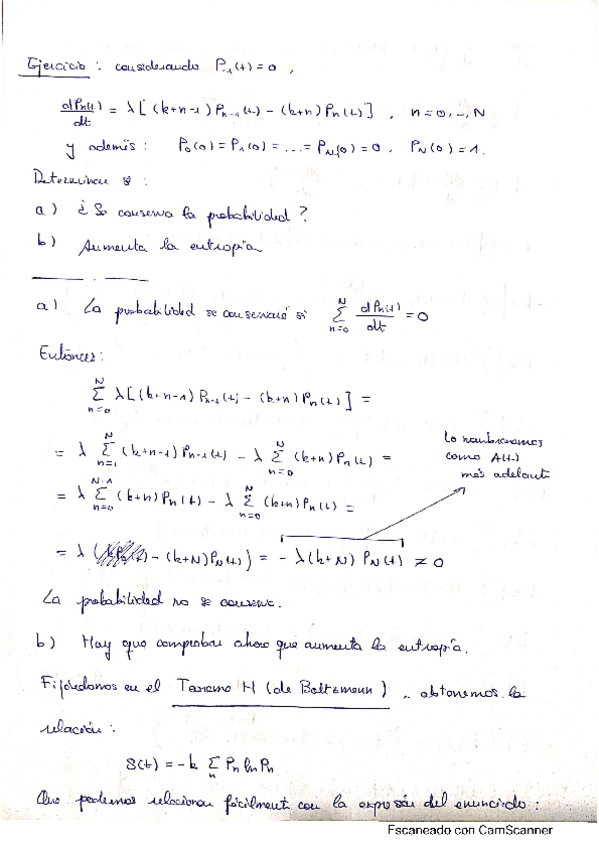 Ejercicio : considerando P₋₁(t) = 0 ,
dPn(t)/dt = λ [ (k+n-1) Pn-1(t) - (k+n) Pn(t) ] , n = 0, ..., N
y además : P₀(0) = P₁(0) = ... = PN-1(0) = 0 . PN(0) = 1 .
Determinar si :
a) ¿ Se conserva la probabilidad ?
b) Aumenta la entropía.
a) La probabilidad se conservará si Σ_{n=0}^{N} dPn(t)/dt = 0
Entonces :
Σ_{n=0}^{N} λ [ (k+n-1) Pn-1(t) - (k+n) Pn(t) ] =
= λ Σ_{n=1}^{N} (k+n-1) Pn-1(t) - λ Σ_{n=0}^{N} (k+n) Pn(t) =
Lo nombraremos
como A(t)
más adelante
= λ Σ_{n=0}^{N-1} (k+n) Pn(t) - λ Σ_{n=0}^{N} (k+n) Pn(t) =
= λ ( - (k+N) PN(t) ) = - λ (k+N) PN(t) ≠ 0
La probabilidad no se conserva.
b) Hay que comprobar ahora que aumenta la entropía.
Fijándonos en el Teorema H (de Boltzmann) , obtenemos la
relación :
S(t) = - k Σ_n Pn ln Pn
Que podemos relacionar fácilmente con la expresión del enunciado :
Escaneado con CamScanner